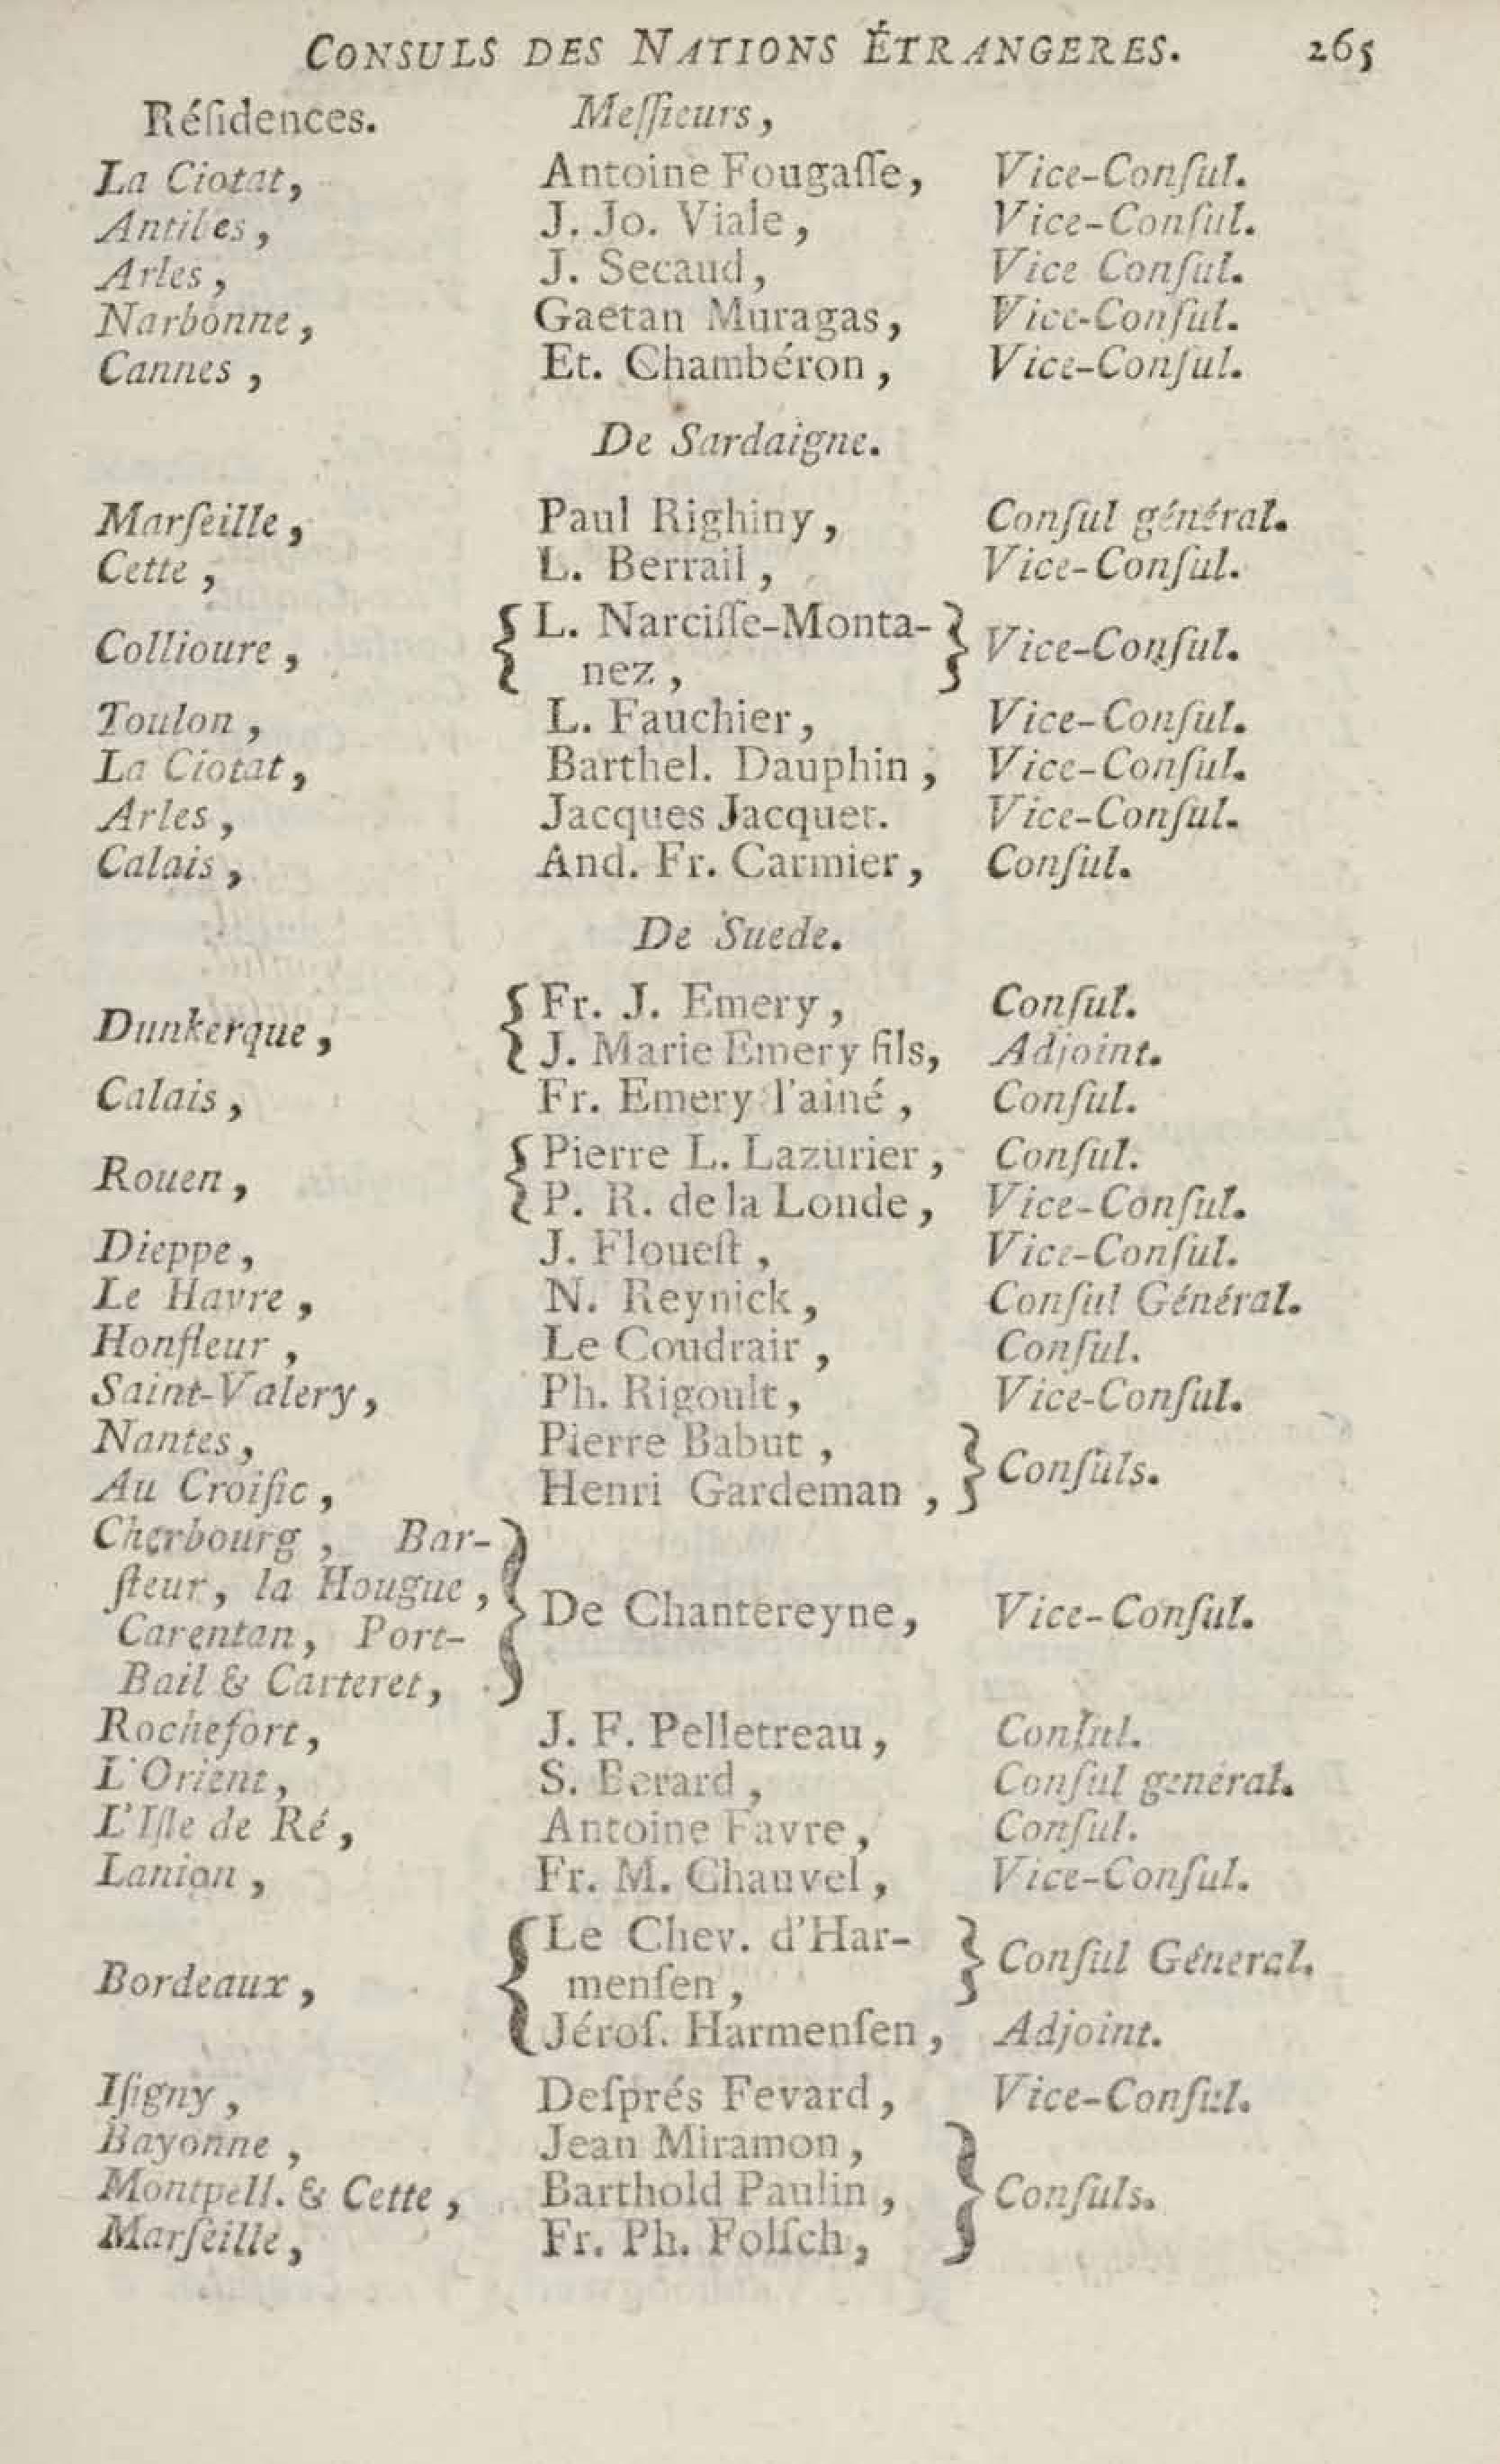 CONSULS DES NATIONS ÉTRANGERES. 265
Réſidences. Meſſieurs,
La Ciotat, Antoine Fougaſſe, Vice-Conſul.
Antibes, J. Jo. Viale, Vice-Conſul.
Arles, J. Secaud, Vice Conſul.
Narbonne, Gaetan Muragas, Vice-Conſul.
Cannes, Et. Chambéron, Vice-Conſul.
De Sardaigne.
Marſeille, Paul Righiny, Conſul général.
Cette, L. Berrail, Vice-Conſul.
Collioure, { L. Narciſſe-Monta- } Vice-Conſul.
nez,
Toulon, L. Fauchier, Vice-Conſul.
La Ciotat, Barthel. Dauphin, Vice-Conſul.
Arles, Jacques Jacquet. Vice-Conſul.
Calais, And. Fr. Carmier, Conſul.
De Suede.
Dunkerque, { Fr. J. Emery, Conſul.
J. Marie Emery fils, Adjoint.
Calais, Fr. Emery l'ainé, Conſul.
Rouen, { Pierre L. Lazurier, Conſul.
P. R. de la Londe, Vice-Conſul.
Dieppe, J. Floueſt, Vice-Conſul.
Le Havre, N. Reynick, Conſul Général.
Honfleur, Le Coudrair, Conſul.
Saint-Valery, Ph. Rigoult, Vice-Conſul.
Nantes, Pierre Babut, } Conſuls.
Au Croiſic, Henri Gardeman,
Cherbourg, Bar-
fleur, la Hougue, } De Chantereyne, Vice-Conſul.
Carentan, Port-
Bail & Carteret,
Rochefort, J. F. Pelletreau, Conſul.
L'Orient, S. Berard, Conſul général.
L'Iſle de Ré, Antoine Favre, Conſul.
Lanion, Fr. M. Chauvel, Vice-Conſul.
Bordeaux, { Le Chev. d'Har- } Conſul Géneral.
menſen,
Jéroſ. Harmenſen, Adjoint.
Iſigny, Deſprés Fevard, Vice-Conſul.
Bayonne, Jean Miramon,
Montpell. & Cette, Barthold Paulin, } Conſuls.
Marſeille, Fr. Ph. Folſch,